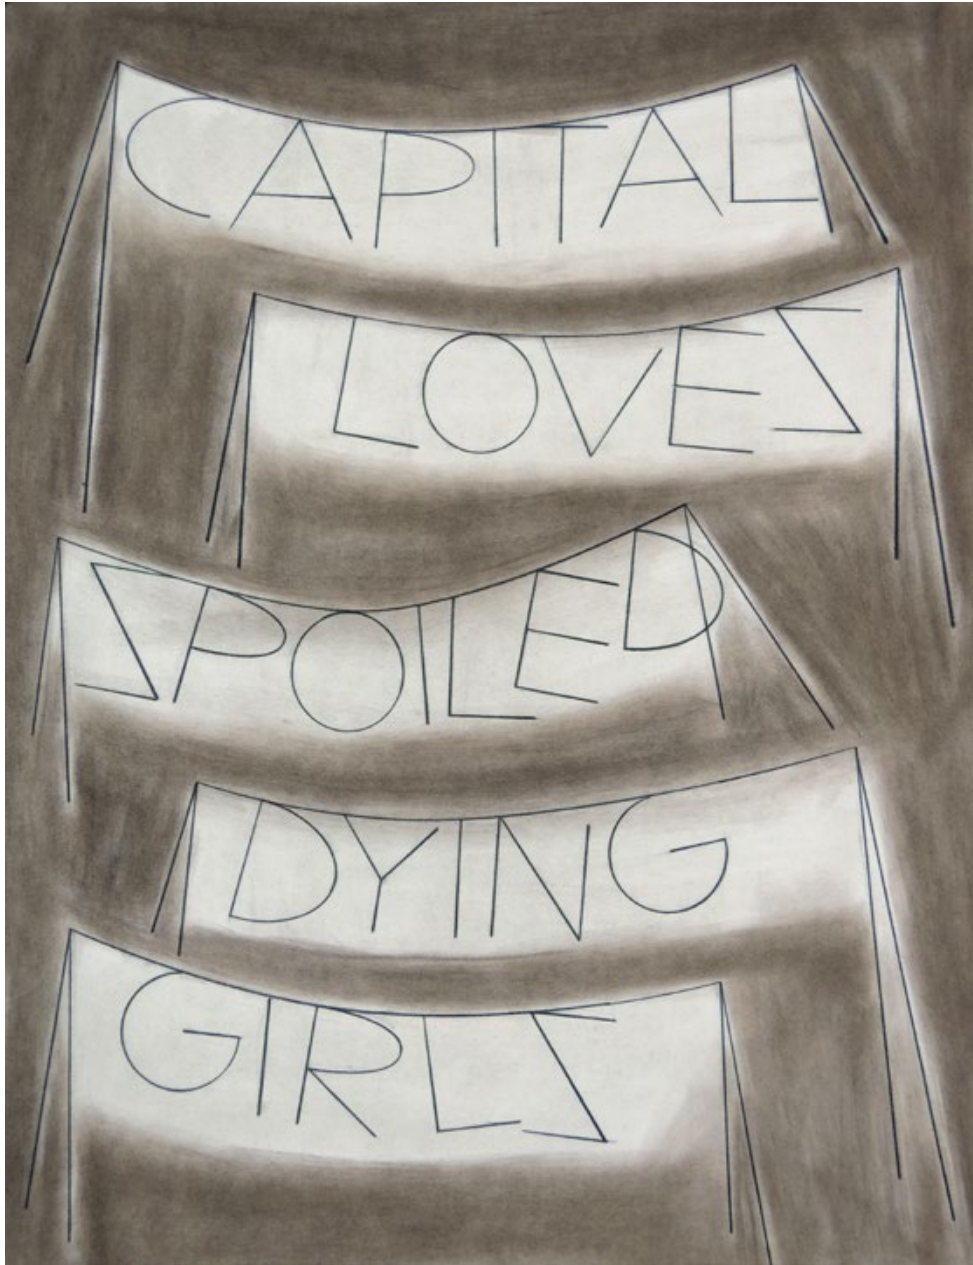 CAPITAL
LOVES
SPOILED
DYING
GIRLS